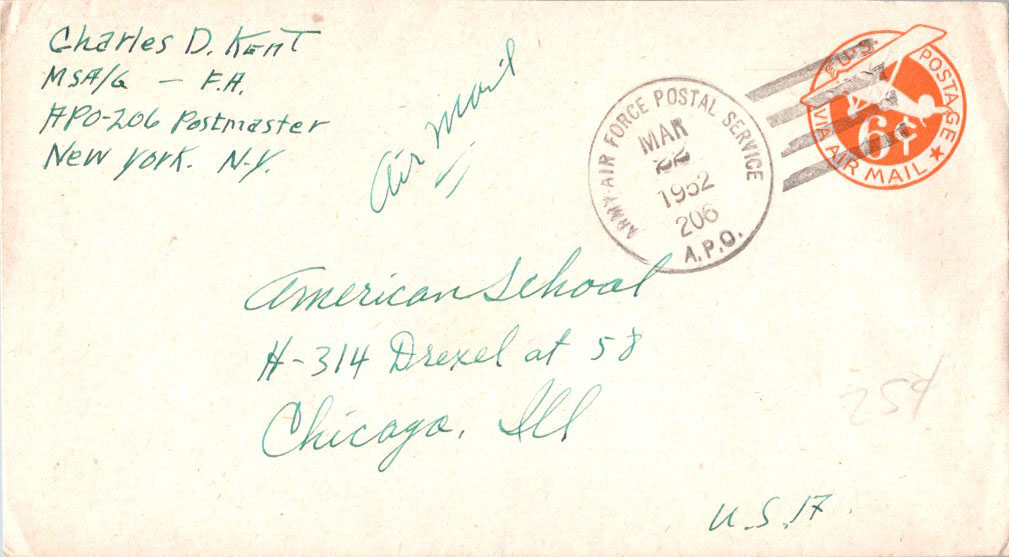 Charles D. Kent
MSA/G - F.A.
APO-206 Postmaster
New York. N.Y.
air mail
ARMY-AIR FORCE POSTAL SERVICE
MAR
22
1952
206
A.P.O.
U.S. POSTAGE
6¢
VIA AIR MAIL
American School
H-314 Drexel at 58
Chicago, Ill
25¢
U.S. 17.